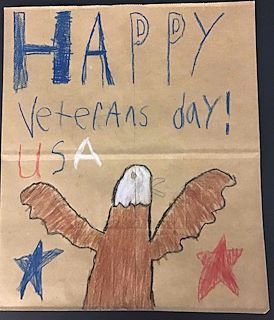 HAPPY
Veterans day!
USA